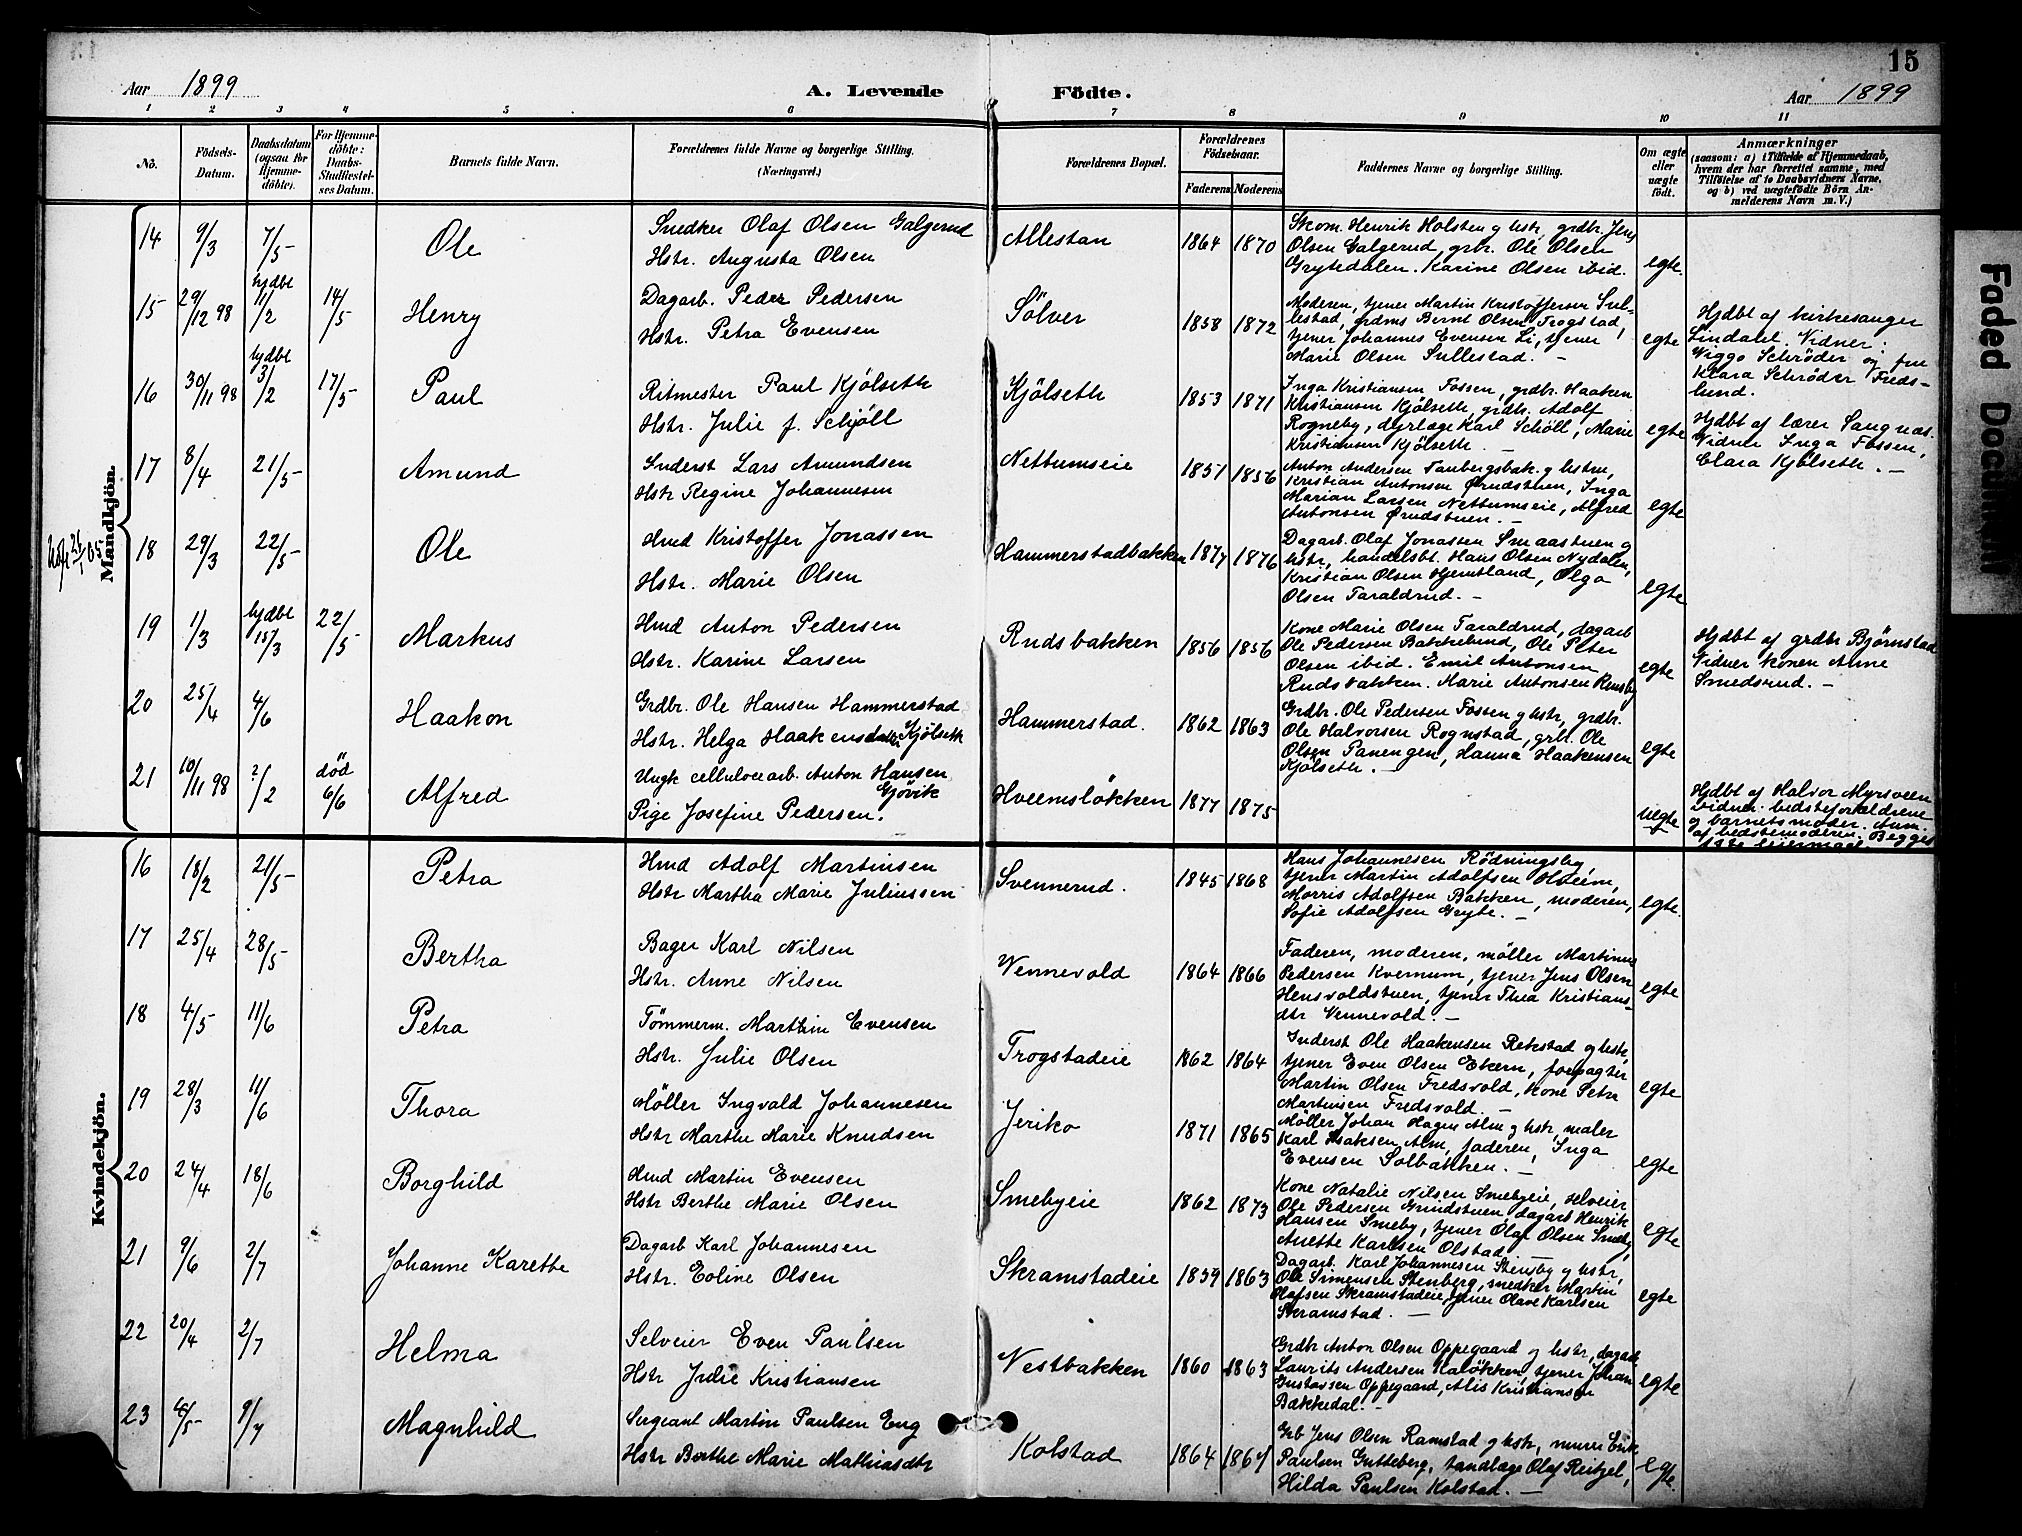 15
Aar 1899
A. Levende Födte.
Aar 1899
1 2 3 4 5 6 7 8 9 10 11
No.
Födsels-Datum.
Daabsdatum (ogsaa for Hjemme-döbte).
For Hjemme-döbte: Daabs-Stadfæstel-ses Datum.
Barnets fulde Navn.
Forældrenes fulde Navne og borgerlige Stilling. (Næringsvei.)
Forældrenes Bopæl.
Forældrenes Födselsaar.
Faderens Moderens
Faddernes Navne og borgerlige Stilling.
Om ægte eller uægte födt.
Anmærkninger
(saasom: a) i Tilfælde af Hjemmedaab,
hvem der har forrettet samme, med
Tilföielse af to Daabsvidners Navne,
og b) ved uægtefödte Börn An-
melderens Navn m. V.)
Mandkjön.
14 9/3 7/5 Ole
Snedker Olaf Olsen Galgerud
Hstr. Augusta Olsen
Allestan 1864 1870
Skom. Henrik Holsten g hstr, grdbr. Jens
Olsen Galgerud, grbr. Ole Olsen
Grytedalen. Karine Olsen ibid.
egte.
15 29/12 98 hjdbt 11/2 14/5 Henry
Dagarb. Peder Pedersen
Hstr. Petra Evensen
Sölver 1858 1872
Moderen, tjener Martin Kristoffersen Sul-
lestad, grdms Bernt Olsen Trogstad,
tjener Johannes Evensen Li, tjener
Marie Olsen Sullestad. -
egte
Hjdbt af kirkesanger
Lindahl. Vidner:
Viggo Schröder og fru
Klara Schröder Freds-
lund.
16 30/11 98 hjdbt 3/2 17/5 Paul
Ritmester Paul Kjölseth
Hstr. Julie f. Schjöll
Kjölseth 1853 1871
Inga Kristiansen Fossen, grdbr. Haaken
Kristiansen Kjölseth, grdbr. Adolf
Rogneby, dyrlæge Karl Schöll, Marie
Kristiansen Kjölseth. -
egte
Hjdbt af lærer Sangnæs.
Vidner Inga Fossen,
Clara Kjölseth. -
17 8/4 21/5 Amund
Inderst Lars Amundsen
Hstr Regine Johannesen
Nettumseie 1851 1856
Anton Andersen Taubergsbak. g hstru,
Kristian Antonsen Ørudstuen, Inga
Marian Larsen Nettumseie, Alfred
Antonsen Ørudstuen. -
egte
18 29/3 22/5 Ole
Hmd Kristoffer Jonassen
Hstr. Marie Olsen
Hammerstadbakken 1877 1876
Dagarb. Olaf Jonassen Smaastuen g
hstr, handelsbt. Hans Olsen Nydalen,
Kristian Olsen Hjemtland, Olga
Olsen Taraldrud. -
egte
19 1/3 hjdbt 15/3 22/5 Markus
Hmd Anton Pedersen
Hstr. Karine Larsen
Rudsbakken 1856 1856
Kone Marie Olsen Taraldrud, dagarb
Ole Pedersen Bakkelund, Ole Peter
Olsen ibid. Emil Antonsen
Rudsbakken. Marie Antonsen
egte
Hjdbt af grdbr Bjørnstad
Vidner konen Anne
Smedsrud. -
20 25/4 4/6 Haakon
Grdbr. Ole Hansen Hammerstad
Hstr. Helga Haakensdatter Kjölseth
Hammerstad. 1862 1863
Grdbr. Ole Pedersen Fossen g hstr, grdbr.
Ole Halvorsen Rognstad, grb. Ole
Olsen Panengen, Hanna Haakensen
Kjölseth. -
egte
21 10/11 98 ?/2 död 6/6 Alfred
Ungk cellulocearb. Anton Hansen
Gjövik
Pige Josefine Pedersen.
Hveemslökken 1877 1875
uegte
Hjdbt af Halvor Myrsveen
Vidner bedsteforældrene
g barnets moder. Anm.
af bedstemoderen. Begges
1ste leiermaal
Kvindekjön.
16 18/2 21/5 Petra
Hmd Adolf Martinsen
Hstr Martha Marie Juliussen
Svennerud. 1845 1868
Hans Johannesen Rödningsby,
tjener Martin Adolfsen Hveem,
Morris Adolfsen Bakken, moderen,
Sofie Adolfsen Gryte. -
egte.
17 25/4 28/5 Bertha
Bager Karl Nilsen
Hstr. Anne Nilsen
Vennevold 1864 1866
Faderen, moderen, möller Martinus
Pedersen Kvernum, tjener Jens Olsen
Hensvoldstuen, tjener Thea Kristians-
dtr Vennevold. -
egte
18 4/5 11/6 Petra
Tömmerm. Marthin Evensen
Hstr. Julie Olsen
Trogstadeie 1862 1864
Inderst Ole Haakensen Rekstad og hstr,
tjener Even Olsen Ekern, forpagter
Martin Olsen Fredsvold, kone Petra
Martinsen Fredsvold. -
egte
19 28/3 11/6 Thora
Möller Ingvald Johannesen
Hstr Marthe Marie Knudsen
Jeriko 1871 1865
Möller Johan Hagen Alm g hstr, maler
Karl Isaksen Alm, faderen, Inga
Evensen Solbakken. -
egte
20 24/4 18/6 Borghild
Hmd Martin Evensen
Hstr Berthe Marie Olsen
Smebyeie 1862 1873
Kone Natalie Nilsen Smebyeie, selveier
Ole Pedersen Grindstuen, dagarb Henrik
Hansen Smeby, tjener Olaf Olsen Smeby,
Anette Karlsen Olstad
egte
21 9/6 2/7 Johanne Karethe
Dagarb Karl Johannesen
Hstr. Eoline Olsen
Skramstadeie 1859 1863
Dagarb. Karl Johannesen Stensby g hstr,
Ole Simensen Stenberg, snedker Martin
Olafsen Skramstadeie, tjener Olave Karlsen
Skramstad. -
egte
22 20/4 2/7 Helma
Selveier Even Paulsen
Hstr Julie Kristiansen
Vestbakken 1860 1863
Grdbr Anton Olsen Oppegaard og hstr, dagarb
Laurits Andersen Kalökken, tjener Johan
Gustavsen Oppegaard, Alis Kristiansen
Bækkedal. -
egte
23 6/5 9/7 Magnhild
Sergeant Martin Paulsen Eng
Hstr Berthe Marie Mathiasdtr
Kolstad 1864 1867
Grb Jens Olsen Ramstad g hstr, murer Erik
Paulsen Gutteberg, tandlæge Olaf Reitzel,
Hilda Paulsen Kolstad. -
egte
Faded Document